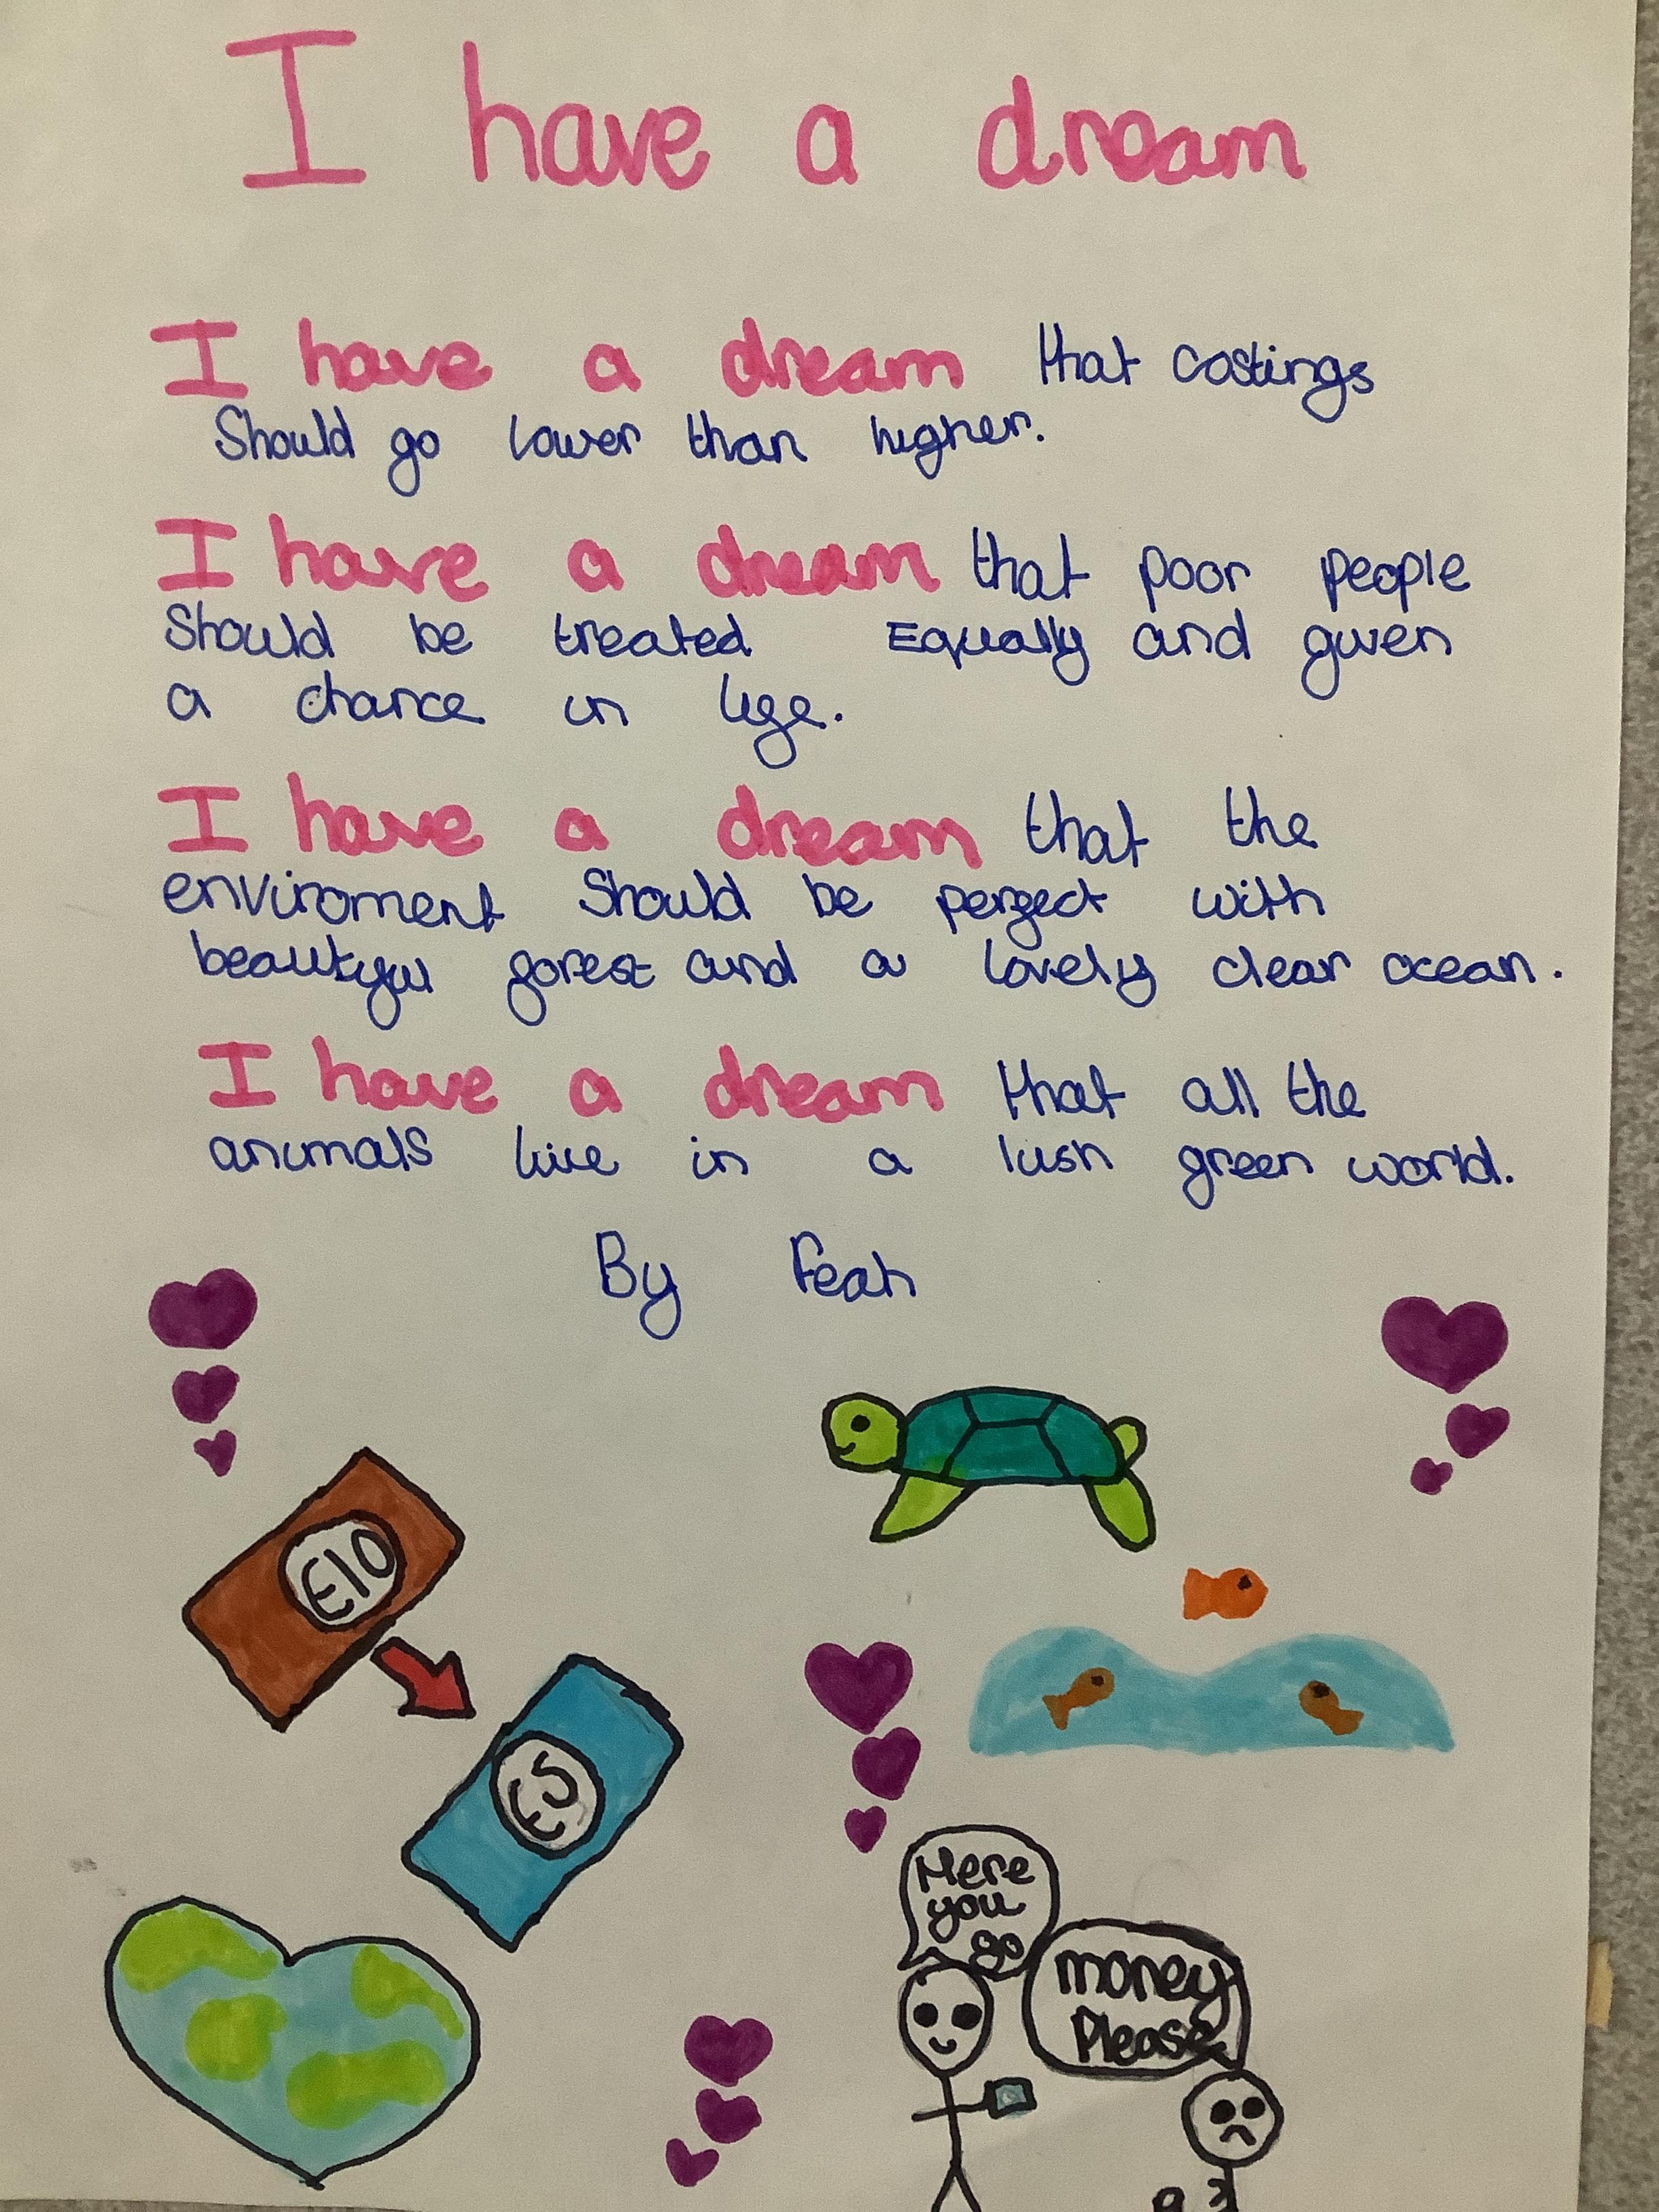 I have a dream
I have a dream that costings
Should go lower than higher.
I have a dream that poor people
Should be treated Equally and given
a chance in life.
I have a dream that the
enviroment Should be perfect with
beautiful forest and a lovely clear ocean.
I have a dream that all the
animals live in a lush green world.
By Feah
£10
£5
Here
you
go
money
Please